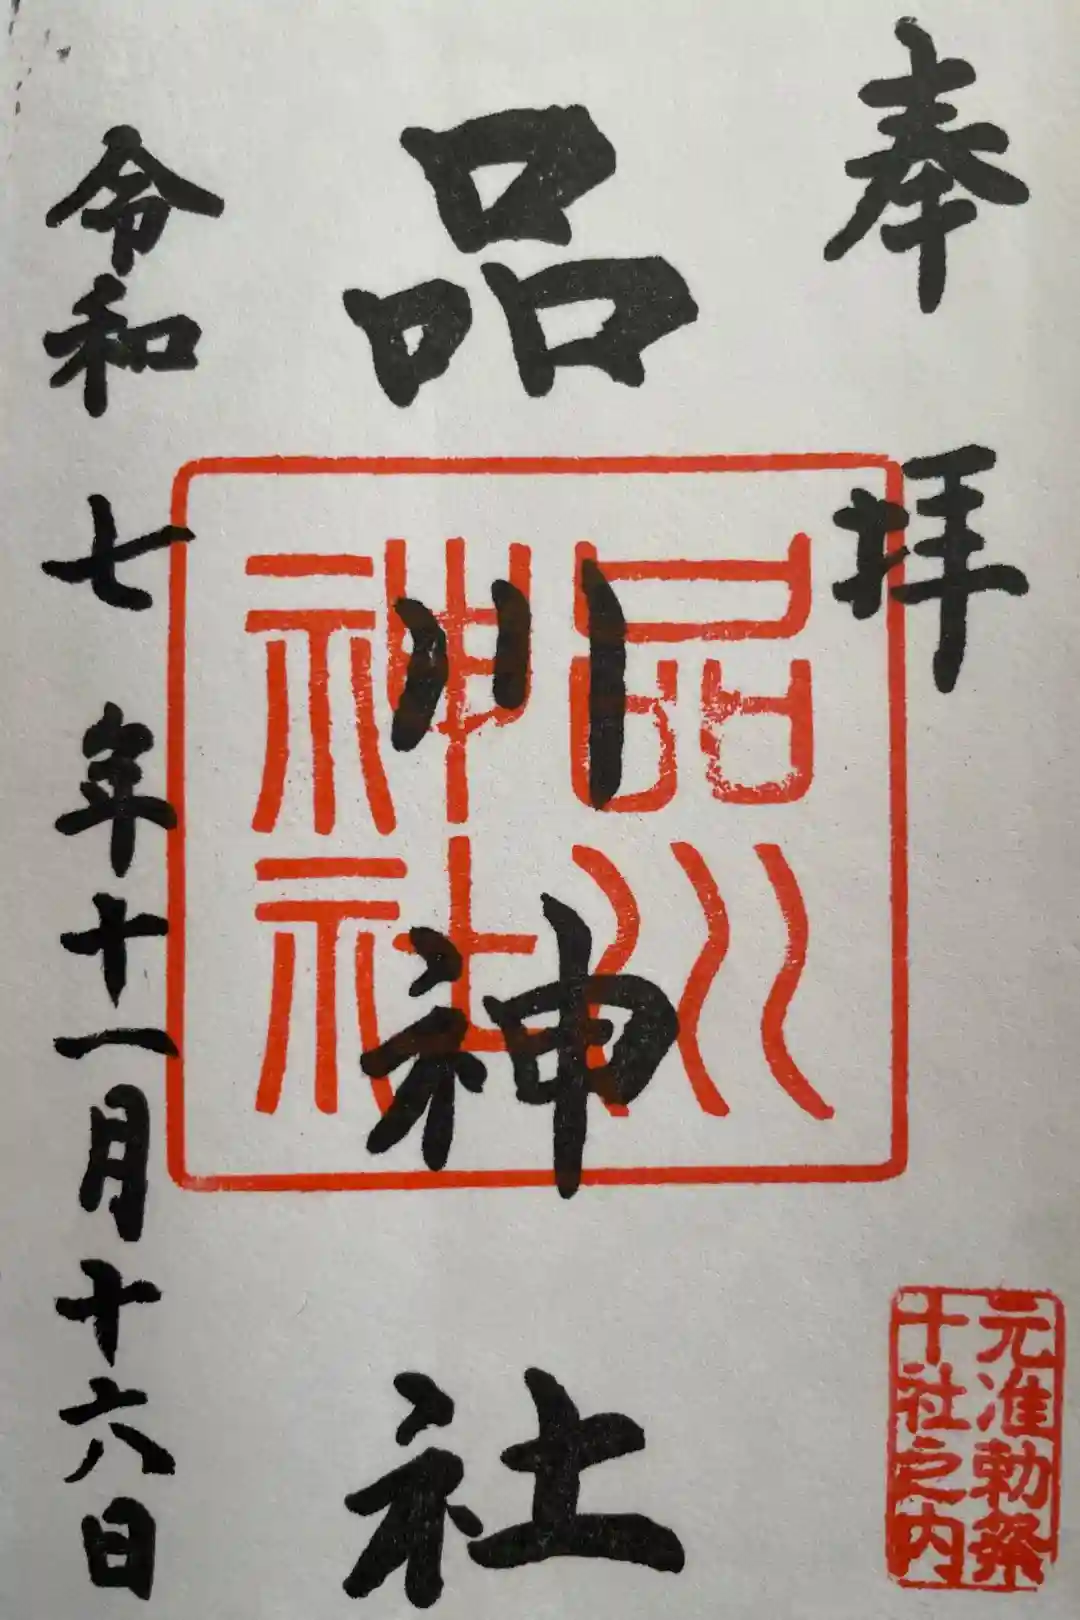 奉拝
品川神社
品川
神社
令和七年十一月十六日
元准勅祭
十社之内